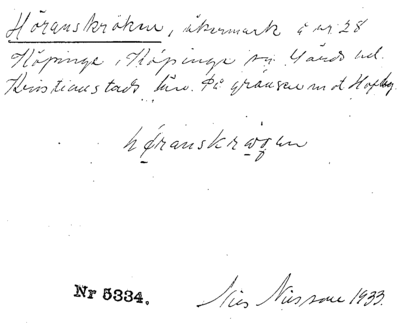 Höranskröken, åkermark å nr 28
Köpinge, Köpinge sn, Gärds hd.
Kristianstads län. På gränsen mot
høranskrωgen
Nr 5334. Nils Nilsson 1933.